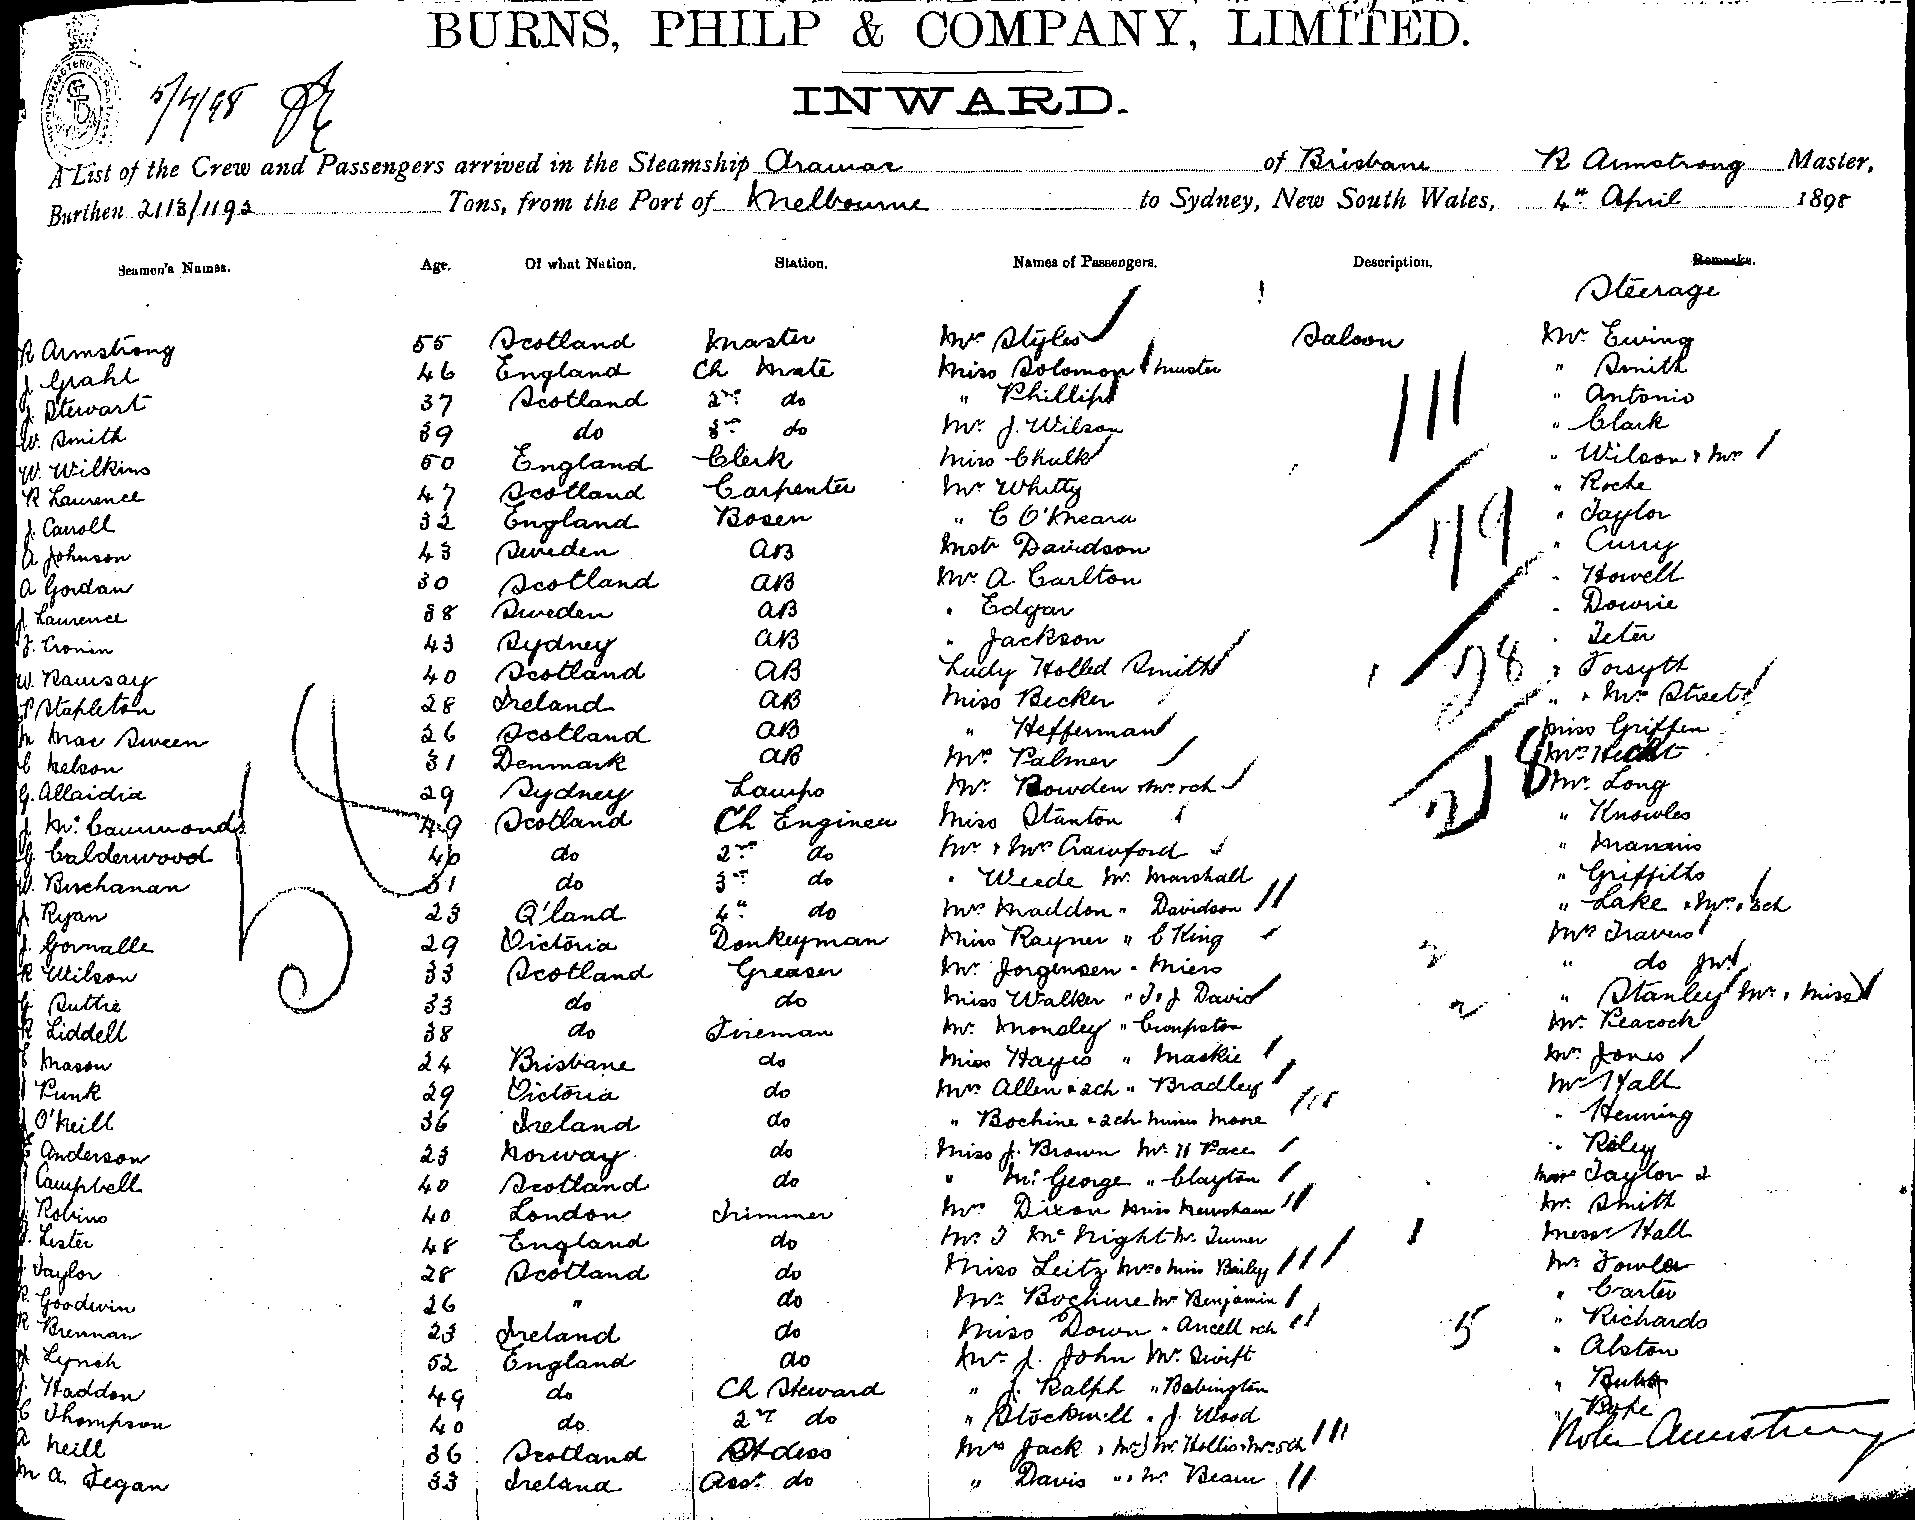 BURNS, PHILP & COMPANY, LIMITED.
INWARD.
5/4/98
A List of the Crew and Passengers arrived in the Steamship Aramac of Brisbane R Armstrong Master,
Burthen 2113/1193 Tons, from the Port of Melbourne to Sydney, New South Wales, 4th April 1898
Seamen's Names. Age. Of what Nation. Station. Names of Passengers. Description. Remarks.
Steerage
R Armstrong 55 Scotland Master Mrs Styles Saloon Mr. Ewing
J. Grahl 46 England Ch Mate Miss Solomon " Smith
J. Stewart 37 Scotland 2nd do " Phillips " Antonio
W. Smith 39 do 3rd do Mr. J. Wilson " Clark
W. Wilkins 50 England Clerk Miss Chulk " Wilson & Mrs
R Laurence 47 Scotland Carpenter Mr Whitty " Roche
J. Carroll 32 England Bosen " C O'Meara " Taylor
A Johnson 43 Sweden AB Mstr Davidson " Curry
A Gordon 30 Scotland AB Mr. A. Carlton " Howell
J. Laurence 38 Sweden AB " Edgar " Downie
J. Cronin 43 Sydney AB " Jackson " Teter
W. Ramsay 40 Scotland AB Lady Holled Smith " Forsyth
P Stapleton 28 Ireland AB Miss Becker " & Mrs Street
M Mac Sween 26 Scotland AB " Hefferman Miss Griffen
C Nelson 31 Denmark AB Mrs Palmer Mrs Hecht
G. Allaidia 29 Sydney Lamps Mr. Bowden & Mrs & ch Mr. Long
J. Mc Cammond 49 Scotland Ch Engineer Miss Stanton " Knowles
G Calderwood 40 do 2nd do Mr & Mrs Crawford "
W. Buchanan 31 do 3rd do " Weede Mr. Marshall " Griffiths
J. Ryan 23 Q'land 4th do Mrs Maddon " Davidson " Lake & Mrs & 3ch
J. Gornalle 29 Victoria Donkeyman Miss Rayner " C King Mrs Travers
R Wilson 33 Scotland Greaser Mr. Jorgensen " Miers " do Jnr
G Suttie 33 do do Miss Walker " T & J David " Stanley Mr. & Miss
R Liddell 38 do Fireman Mr. Monsley " Crompston Mr. Peacock
Mason 24 Brisbane do Miss Hayes " Mackie Mrs Jones
Punk 29 Victoria do Mrs Allen & 2ch " Bradley Mr Hall
O'Neill 36 Ireland do " Bochine & 2ch Misses Moore " Henning
Anderson 23 Norway do Miss J. Brown Mr. H Pace " Riley
Campbell 40 Scotland do " McGeorge " Clayton Taylor 2
Robins 40 London Trimmer Mrs Dixon Miss Mr. Smith
J. Lester 48 England do Mr. J McNight Mr. Turner Messrs Hall
J Taylor 28 Scotland do Miss Leitz Mrs & Miss Bailey Mr. Fowler
R. Goodwin 26 " do Mr. Bochure Mr Benjamin " Carter
R Brennan 23 Ireland do Miss Down " Ancell & ch " Richards
J Lynch 52 England do Mr. J. John Mr. Swift " Alston
J. Haddon 49 do Ch Steward " J. Ralph " Babington
C Thompson 40 do 2nd do " Stockwell " J. Wood " Bope
A Neill 36 Scotland Stdess Mrs Jack & Mr. Hollis & Mrs & ch
M A. Fegan 33 Ireland Asst. do " Davis Beam